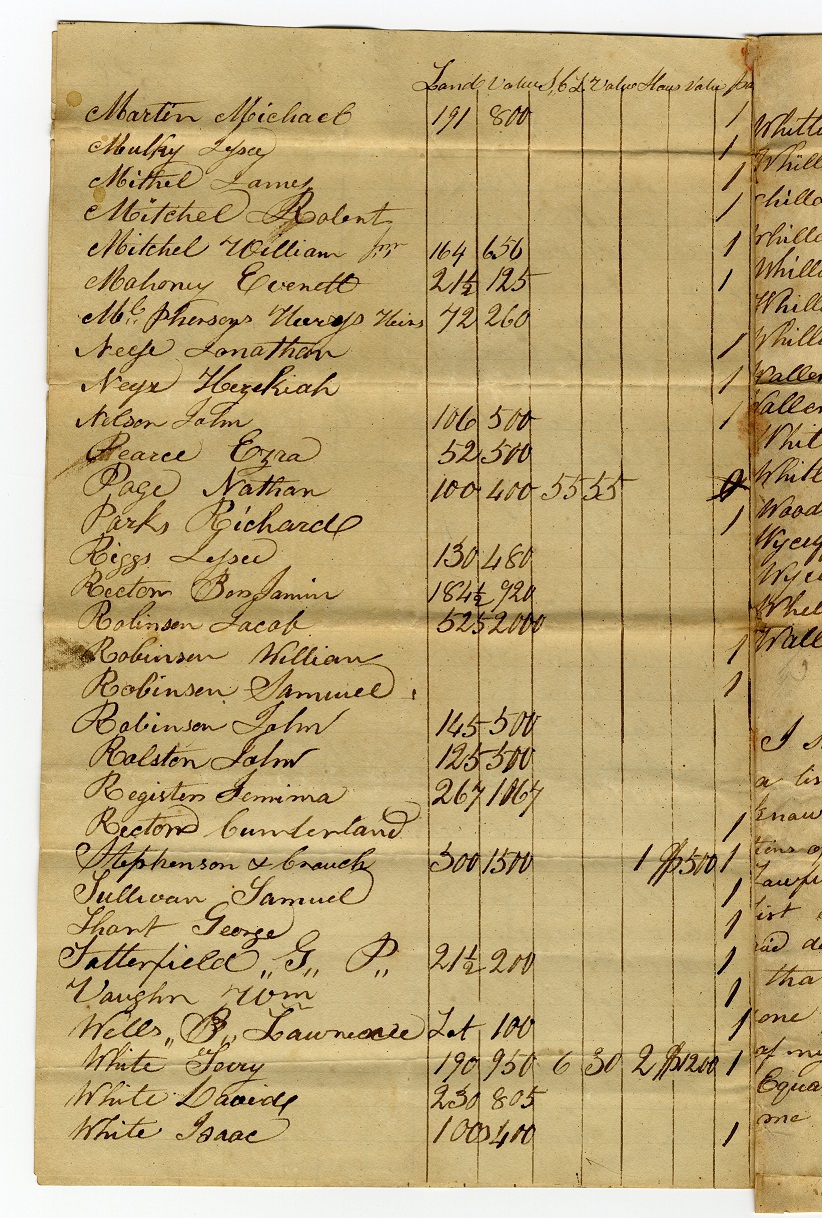 Land Value S,C L Value Slaves Value
Martin Michael 191 800 1
Mulky 1
Mithel James 1
Mitchel Robert 1
Mitchel William Jnr 164 656 1
Mahoney Everett 21½ 125 1
Mc Phersons Heirs 72 260
Neese Jonathan 1
Neyr Hezekiah 1
Nelson John 106 500 1
Pearce Ezra 52 500
Page Nathan 100 400 55 55
Parks Richard 1
Riggs 130 480
Rector Benjamin 184½ 920
Robinson Jacob 525 2000
Robinson William 1
Robinson Samuel 1
Robinson John 145 500
Ralston John 125 500
Register Jemima 267 1067
Rector Cumberland 1
Stephenson & Crouch 300 1500 1 $500 1
Sullivan Samuel 1
Short George 1
Satterfield ,,G,, P,, 21½ 200 1
Vaughn Wm 1
Wells,, B,, Lawrence Lot 100 1
White 190 950 6 30 2 $1200 1
White David 230 805
White Isaac 100 400 1
I
a
one
of my
Equa
me